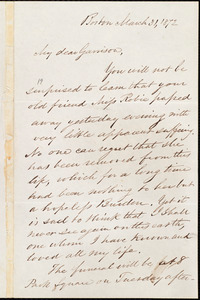 Boston March 31, 1872
My dear Garrison,
You will not be
surprised to learn that your
old friend Miss Robie passed
away yesterday evening with
very little apparent suffering.
No one can regret that she
has been removed from this
life, which for a long time
had been nothing to her but
a hopeless Burden. Yet it
is sad to think that I shall
never see again on this earth,
one whom I have known and
loved all my life.
The funeral will be at 8
Park Square on Tuesday after-